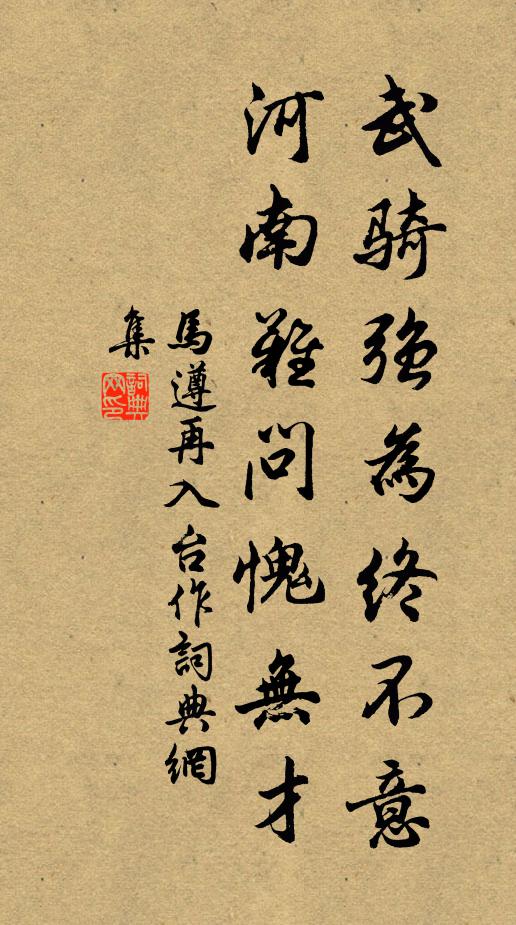 武騎強為終不意
河南難問愧無才
馬遵再入台作詞典網
集
詞典網印